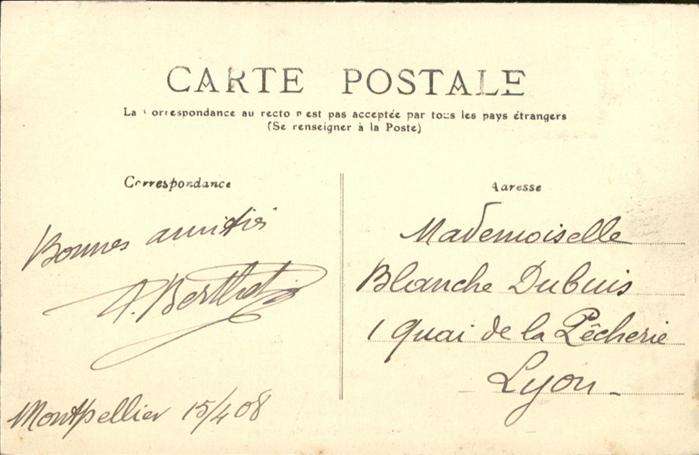 CARTE POSTALE
La Correspondance au recto n'est pas acceptée par tous les pays étrangers
(Se renseigner à la Poste)
Correspondance
Bonnes amitiés
A. Berthet
Montpellier 15/4 08
Adresse
Mademoiselle
Blanche Dubuis
1 quai de la Pêcherie
Lyon